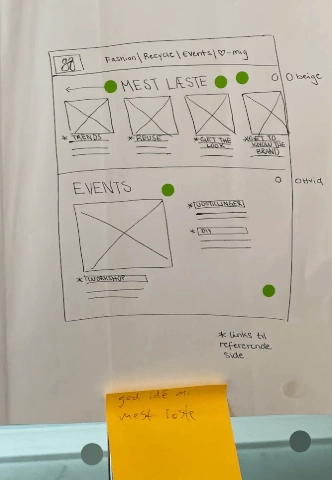 Fashion | Recycle | Events | ♡-mig
MEST LÆSTE
O beige
* TRENDS
* REUSE
* GET THE LOOK
* GET TO KNOW THE BRAND
EVENTS
O Hvid
* UDSTILLINGER
* DIY
* WORKSHOP
* links til
refererende
side
god ide m.
mest læste